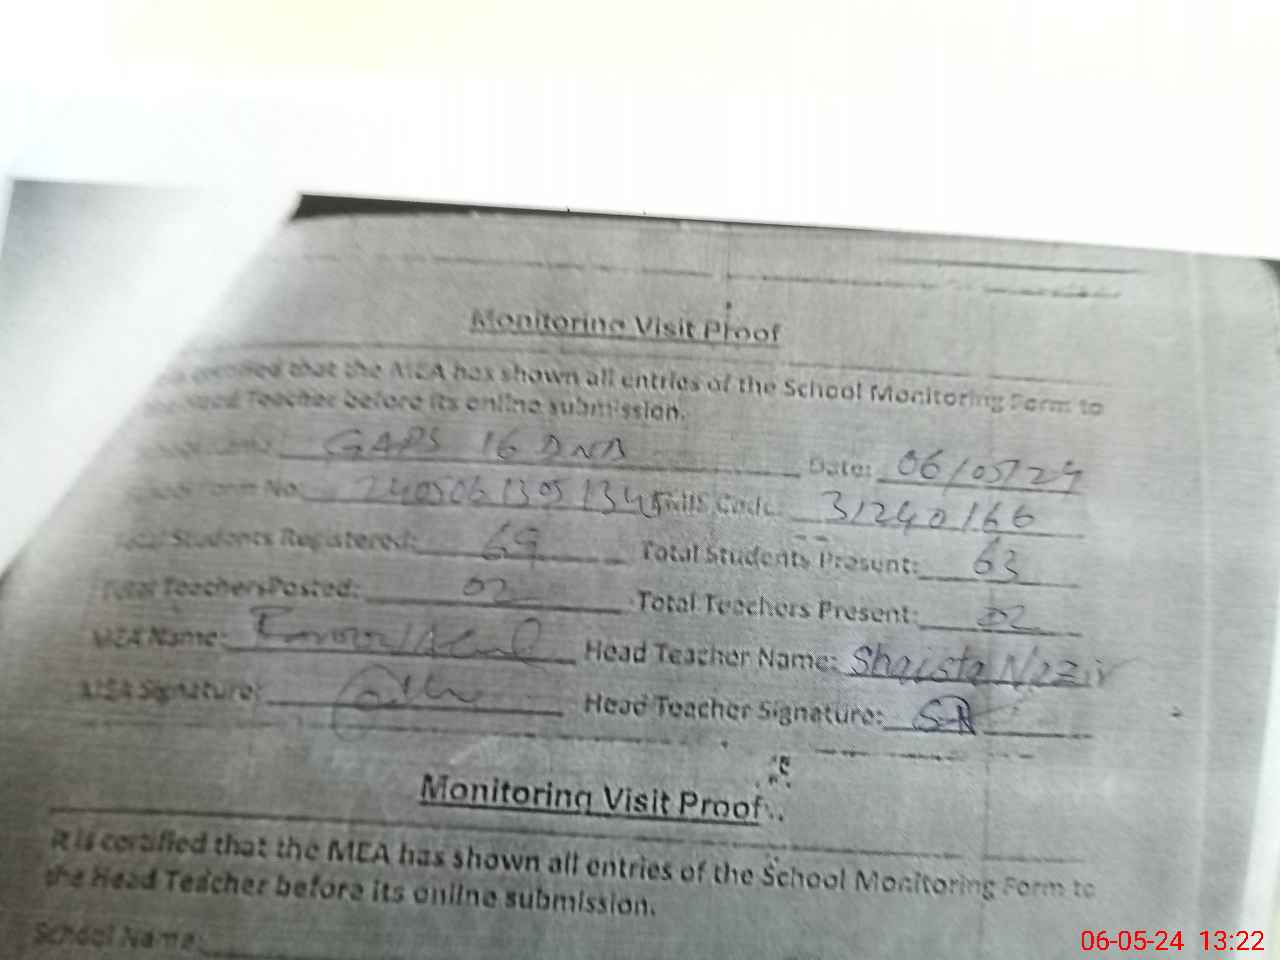 Monitoring Visit Proof
that the MEA has shown all entries of the School Monitoring Form to
Head Teacher before its online submission.
GAPS 16 DNB Date: 06/05/24
School Form No: EMIS Code: 31240166
Total Students Registered: 69 Total Students Present: 63
Total Teachers Posted: 02 Total Teachers Present: 02
MEA Name: Head Teacher Name: Shaista Nazir
MEA Signature: Head Teacher Signature:
Monitoring Visit Proof
It is certified that the MEA has shown all entries of the School Monitoring Form to
the Head Teacher before its online submission.
School Name:
06-05-24 13:22